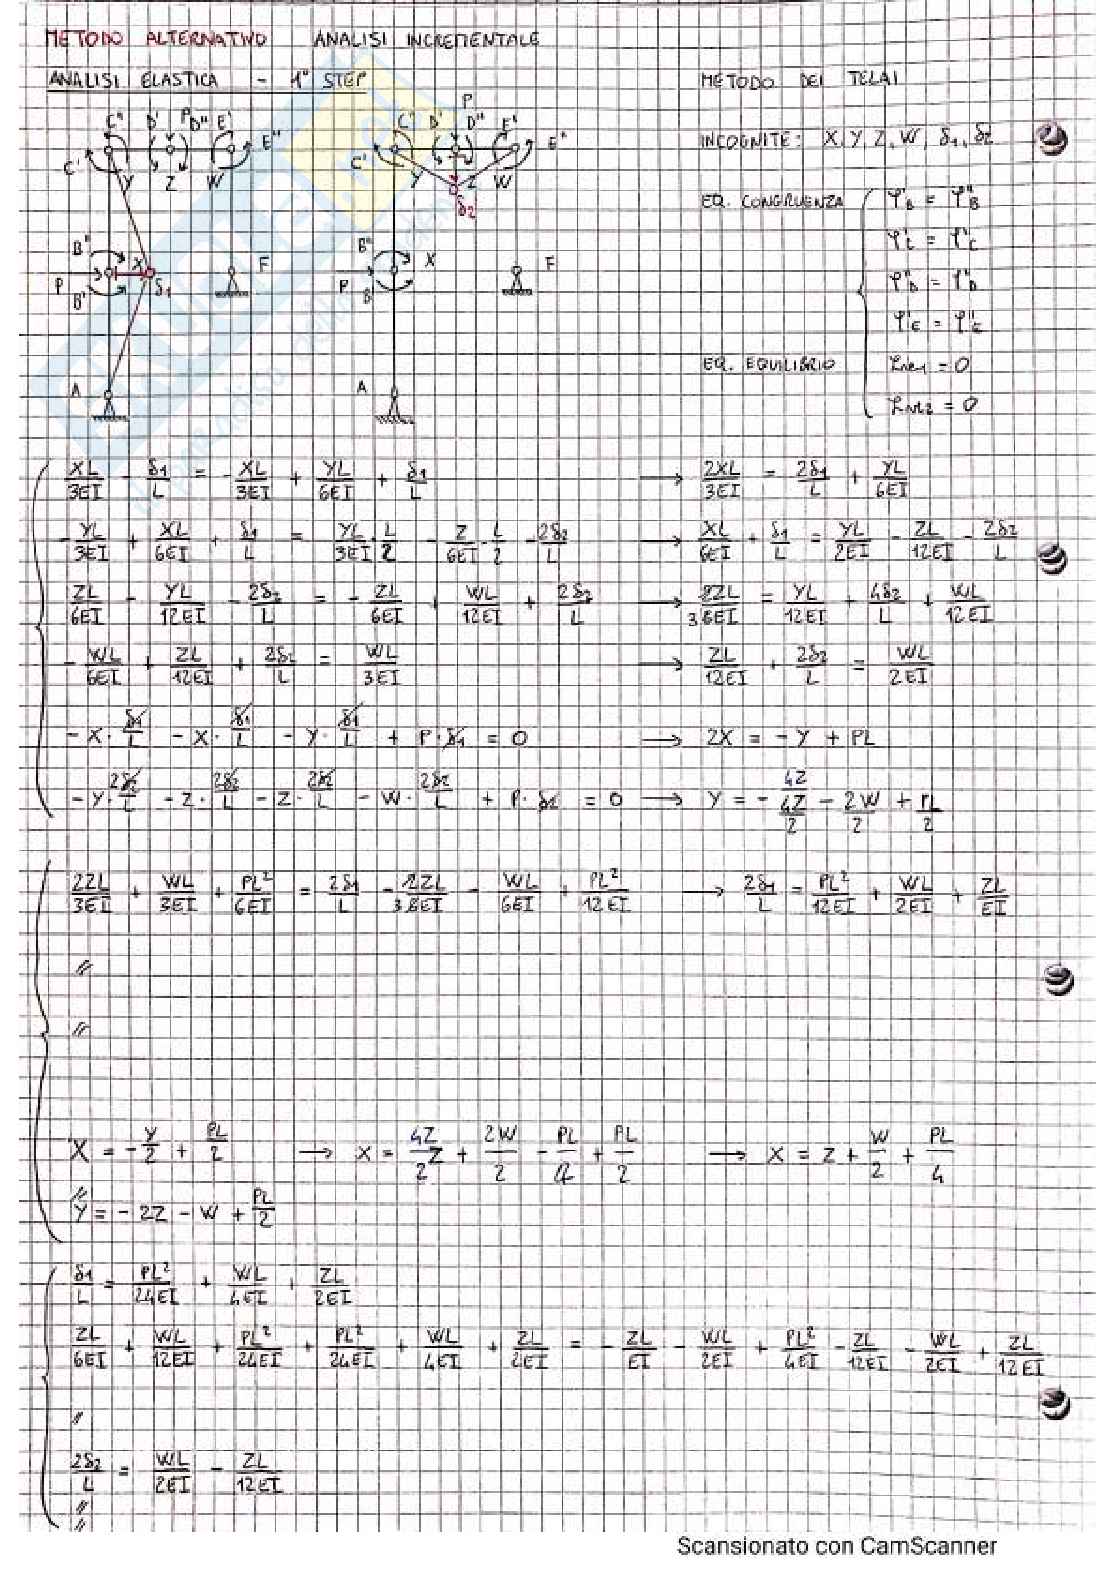 METODO ALTERNATIVO ANALISI INCREMENTALE
ANALISI ELASTICA - 1° STEP METODO DEI TELAI
INCOGNITE: X, Y, Z, W, δ1, δ2
C' C" D' P D" E' E" Y Z W
C' C" D' P D" E' E" Y Z W δ2
B" X P B' δ1 F
B" X P B' F
A A
EQ. CONGRUENZA φ'B = φ"B
φ'C = φ"C
φ'D = φ"D
φ'E = φ"E
EQ. EQUILIBRIO LVE1 = 0
LVE2 = 0
XL/3EI - δ1/L = - XL/3EI + YL/6EI + δ1/L → 2XL/3EI = 2δ1/L + YL/6EI
- YL/3EI + XL/6EI + δ1/L = YL/3EI · L/2 - Z/6EI · L/2 - 2δ2/L → XL/6EI + δ1/L = YL/2EI - ZL/12EI - 2δ2/L
ZL/6EI - YL/12EI - 2δ2/L = - ZL/6EI + WL/12EI + 2δ2/L → 2ZL/36EI = YL/12EI + 4δ2/L + WL/12EI
- WL/6EI + ZL/12EI + 2δ2/L = WL/3EI → ZL/12EI + 2δ2/L = WL/2EI
- X · δ1/L - X · δ1/L - Y · δ1/L + P · δ1 = 0 → 2X = - Y + PL
- Y · 2δ2/L - Z · 2δ2/L - Z · 2δ2/L - W · 2δ2/L + P · δ2 = 0 → Y = - 4Z/2 - 2W/2 + PL/2
2ZL/3EI + WL/3EI + PL²/6EI = 2δ1/L - 2ZL/36EI - WL/6EI + PL²/12EI → 2δ1/L = PL²/12EI + WL/2EI + ZL/EI
//
//
X = - Y/2 + PL/2 → X = 4Z/2 + 2W/2 - PL/4 + PL/2 → X = Z + W/2 + PL/4
//
Y = - 2Z - W + PL/2
δ1/L = PL²/24EI + WL/4EI + ZL/2EI
ZL/6EI + WL/12EI + PL²/24EI + PL²/24EI + WL/4EI + ZL/2EI = - ZL/EI - WL/2EI + PL²/4EI - ZL/12EI - WL/2EI + ZL/12EI
//
2δ2/L = WL/2EI - ZL/12EI
//
//
Scansionato con CamScanner